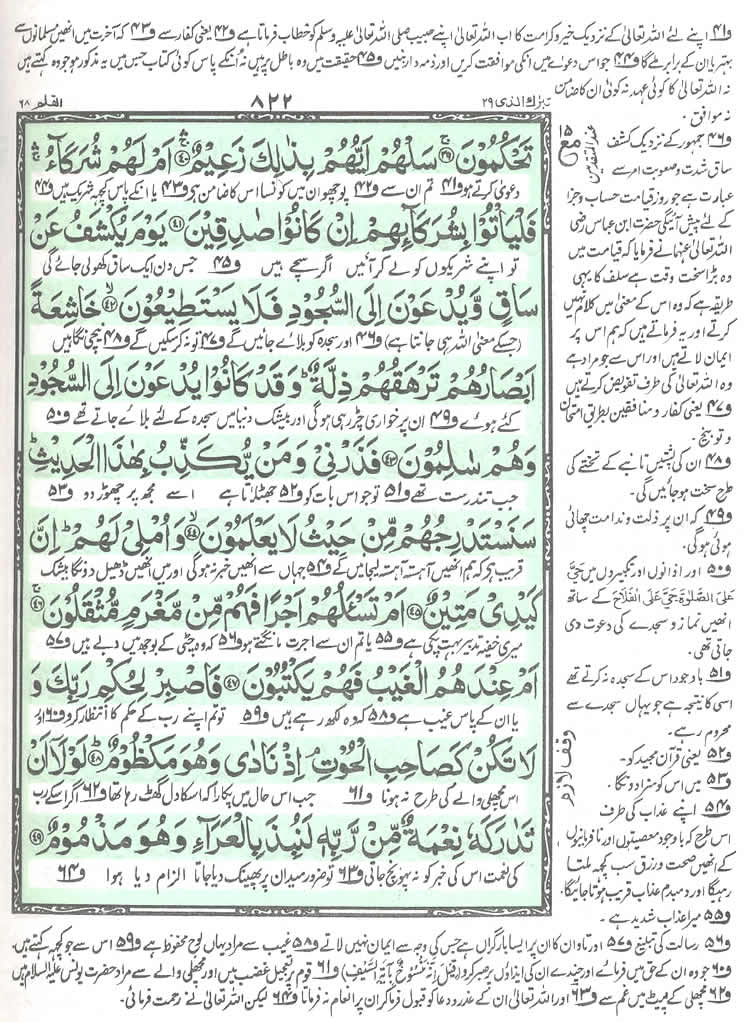 و۴۱ اپنے لئے اللہ تعالیٰ کے نزدیک خیر و کرامت کا اب اللہ تعالیٰ اپنے حبیب صلی اللہ تعالیٰ علیہ وسلم کو خطاب فرماتا ہے و۴۲ یعنی کفار سے و۴۳ کہ آخرت میں انھیں مسلمانوں سے
بہتر یا ان کے برابر ملے گا و۴۴ جو اس دعوے میں انکی موافقت کریں اور ذمہ دار بنیں و۴۵ حقیقت میں وہ باطل پر ہیں نہ اُنکے پاس کوئی کتاب جس میں یہ مذکور ہو جو وہ کہتے ہیں
نہ اللہ تعالیٰ کا کوئی عہد نہ کوئی ان کا ضامن
نہ موافق۔
تبٰرك الذی ۲۹
۸۲۲
القلم ۶۸
تَحْكُمُوْنَ ۳۹ سَلْهُمْ اَيُّهُمْ بِذٰلِكَ زَعِيْمٌ ۴۰ اَمْ لَهُمْ شُرَكَآءُ
دعویٰ کرتے ہو و۴۱ تم ان سے و۴۲ پوچھو ان میں کونسا اس کا ضامن ہے و۴۳ یا انکے پاس کچھ شریک ہیں و۴۴
فَلْيَاْتُوْا بِشُرَكَآئِهِمْ اِنْ كَانُوْا صٰدِقِيْنَ ۴۱ يَوْمَ يُكْشَفُ عَنْ
تو اپنے شریکوں کو لے کر آئیں اگر سچے ہیں و۴۵ جس دن ایک ساق کھولی جائے گی
سَاقٍ وَّيُدْعَوْنَ اِلَى السُّجُوْدِ فَلَا يَسْتَطِيْعُوْنَ ۴۲ خَاشِعَةً
(جسکے معنیٰ اللہ ہی جانتا ہے) و۴۶ اور سجدہ کو بلائے جائیں گے و۴۷ تو نہ کرسکیں گے و۴۸ نیچی نگاہیں
اَبْصَارُهُمْ تَرْهَقُهُمْ ذِلَّةٌ وَقَدْ كَانُوْا يُدْعَوْنَ اِلَى السُّجُوْدِ
کئے ہوئے و۴۹ ان پر خواری چڑھ رہی ہوگی اور بیشک دنیا میں سجدہ کے لئے بلائے جاتے تھے و۵۰
وَهُمْ سٰلِمُوْنَ ۴۳ فَذَرْنِيْ وَمَنْ يُّكَذِّبُ بِهٰذَا الْحَدِيْثِ
جب تندرست تھے و۵۱ تو جو اس بات کو و۵۲ جھٹلاتا ہے اسے مجھ پر چھوڑ دو و۵۳
سَنَسْتَدْرِجُهُمْ مِّنْ حَيْثُ لَا يَعْلَمُوْنَ ۴۴ وَاُمْلِيْ لَهُمْ اِنَّ
قریب ہے کہ ہم انھیں آہستہ آہستہ لیجائیں گے و۵۴ جہاں سے انھیں خبر نہ ہوگی اور میں انھیں ڈھیل دونگا بیشک
كَيْدِيْ مَتِيْنٌ ۴۵ اَمْ تَسْئَلُهُمْ اَجْرًا فَهُمْ مِّنْ مَّغْرَمٍ مُّثْقَلُوْنَ ۴۶
میری خفیہ تدبیر بہت پکی ہے و۵۵ یا تم ان سے اجرت مانگتے ہو و۵۶ کہ وہ چٹی کے بوجھ میں دبے ہیں و۵۷
اَمْ عِنْدَهُمُ الْغَيْبُ فَهُمْ يَكْتُبُوْنَ ۴۷ فَاصْبِرْ لِحُكْمِ رَبِّكَ وَ
یا ان کے پاس غیب ہے و۵۸ کہ وہ لکھ رہے ہیں و۵۹ تو تم اپنے رب کے حکم کا انتظار کرو و۶۰ اور
لَا تَكُنْ كَصَاحِبِ الْحُوْتِ اِذْ نَادٰى وَهُوَ مَكْظُوْمٌ ۴۸ لَوْلَآ اَنْ
اس مچھلی والے کی طرح نہ ہونا و۶۱ جب اس حال میں پکارا کہ اسکا دل گھٹ رہا تھا و۶۲ اگر اسکے رب
تَدٰرَكَهٗ نِعْمَةٌ مِّنْ رَّبِّهٖ لَنُبِذَ بِالْعَرَآءِ وَهُوَ مَذْمُوْمٌ ۴۹
کی نعمت اس کی خبر کو نہ پہونچ جاتی و۶۳ تو ضرور میدان پر پھینک دیا جاتا الزام دیا ہوا و۶۴
مع
عند المتقدمین
وقف لازم
و۴۶ جمہور کے نزدیک کشف
ساق شدت و صعوبت امر سے
عبارت ہے جو روز قیامت حساب و جزا
کے لئے پیش آئیگی حضرت ابن عباس رضی
اللہ تعالیٰ عنہما نے فرمایا کہ قیامت میں
وہ بڑا سخت وقت ہے سلف کا یہی
طریقہ ہے کہ وہ اس کے معنیٰ میں کلام نہیں
کرتے اور یہ فرماتے ہیں کہ ہم اس پر
ایمان لاتے ہیں اور اس سے جو مراد ہے
وہ اللہ تعالیٰ کی طرف تفویض کرتے ہیں
و۴۷ یعنی کفار و منافقین بطریق امتحان
و توبیخ۔
و۴۸ ان کی پشتیں تانبے کے تختے کی
طرح سخت ہو جائیں گی۔
و۴۹ کہ ان پر ذلت و ندامت چھائی
ہوئی ہوگی۔
و۵۰ اور اذانوں اور تکبیروں میں حَیَّ
عَلَی الصَّلٰوۃِ حَیَّ عَلَی الْفَلَاحِ کے ساتھ
انھیں نماز و سجدے کی دعوت دی
جاتی تھی۔
و۵۱ باوجود اس کے سجدہ نہ کرتے تھے
اسی کا نتیجہ ہے جو یہاں سجدے سے
محروم رہے۔
و۵۲ یعنی قرآن مجید کو۔
و۵۳ میں اس کو سزا دونگا۔
و۵۴ اپنے عذاب کی طرف
اس طرح کہ باوجود معصیتوں اور نافرمانیوں
کے انھیں صحت و رزق سب کچھ ملتا
رہیگا اور دمبدم عذاب قریب ہوتا جائیگا۔
و۵۵ میرا عذاب شدید ہے۔
و۵۶ رسالت کی تبلیغ و۵۷ اور تاوان کا ان پر ایسا بار گراں ہے جس کی وجہ سے ایمان نہیں لاتے و۵۸ غیب سے مراد یہاں لوح محفوظ ہے و۵۹ اس سے جو کچھ کہتے ہیں۔
و۶۰ جو وہ ان کے حق میں فرمائے اور چندے ان کی ایذاؤں پر صبر کرو (قِیْلَ اِنَّہٗ مَنْسُوْخٌ بِاٰیَۃِ السَّیْفِ) و۶۱ قوم پر تعجیل غضب میں اور مچھلی والے سے مراد حضرت یونس علیہ السلام ہیں
و۶۲ مچھلی کے پیٹ میں غم سے و۶۳ اور اللہ تعالیٰ ان کے عذر و دعا کو قبول فرما کر ان پر انعام نہ فرماتا و۶۴ لیکن اللہ تعالیٰ نے رحمت فرمائی۔